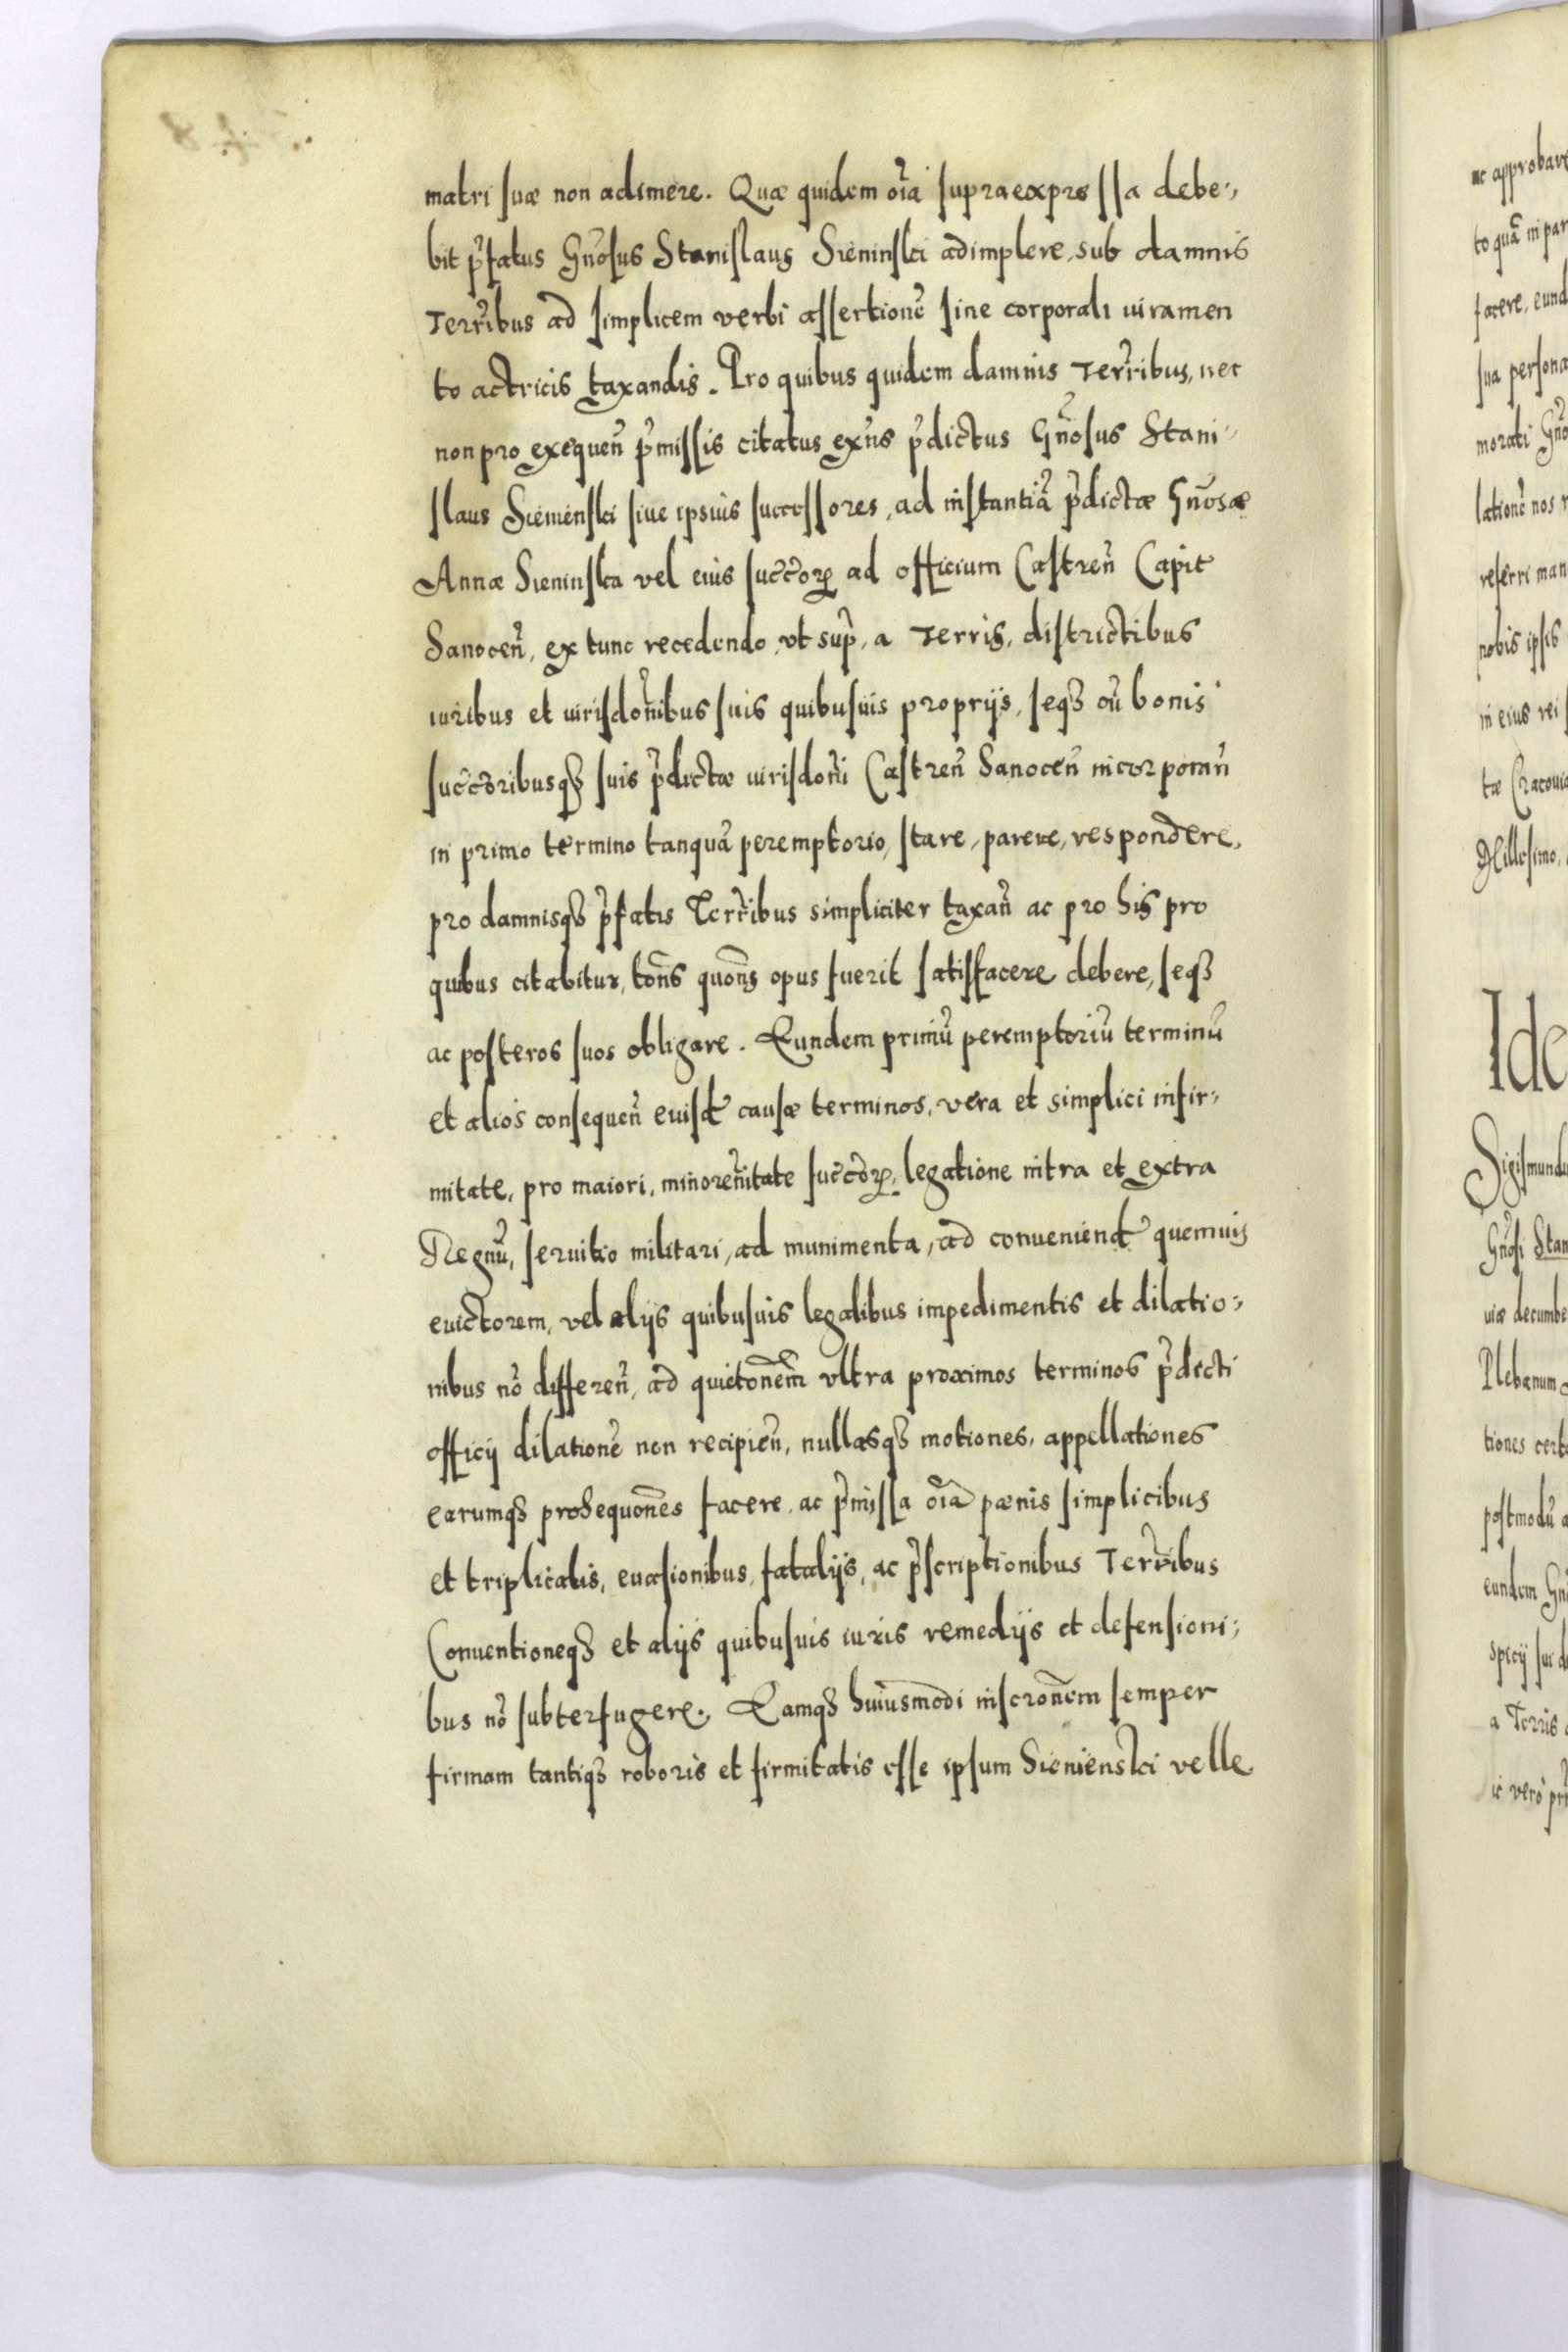 matri suæ non adimere. Quæ quidem oĩa supraexpressa debe-,
bit p̃fatus Gñosus Stanislaus Sieninski adimplere, sub damnis
Terr̃ibus ad simplicem verbi assertionẽ sine corporali iuramen
to actricis taxandis. Pro quibus quidem damnis Terr̃ibus, nec
non pro exequeñ p̃missis citatus ex̃ns p̃dictus Gñosus Stani-
slaus Sieninski siue ipsius successores, ad instantiã p̃dictæ Gñosæ
Annæ Sieninska vel eius succc̃oꝝ ad officium Castreñ Capit
Sanoceñ, ex tunc recedendo, vt sup̃, a Terris, districtibus
iuribus et iurisdic̃onibus suis quibusuis proprijs, seqȝ cũ bonis
succc̃oribusqȝ suis p̃dictæ iurisdic̃oni Castreñ Sanoceñ incorporañ
in primo termino tanquã peremptorio, stare, parere, respondere,
pro damnisqȝ p̃fatis Terr̃ibus simpliciter taxañ ac pro his pro
quibus citabitur, toñs quoñs opus fuerit satisfacere debere, seqȝ
ac posteros suos obligare. Eundem primũ peremptoriũ terminũ
et alios consequeñ euisđ causæ terminos, vera et simplici infir-,
mitate, pro maiori, minoreñitate succc̃oꝝ, legatione intra et extra
Regnũ, seruitio militari, ad munimenta, ad conueniend quemuis
euictorem, vel alijs quibusuis legalibus impedimentis et dilatio-,
nibus nõ differeñ, ad quietõnem vltra proximos terminos p̃dicti
officij dilationẽ non recipieñ, nullasqȝ motiones, appellationes
earumqȝ prosequõnes facere, ac p̃missa oĩa pænis simplicibus
et triplicatis, euasionibus, fatalijs, ac p̃scriptionibus Terr̃ibus
Conuentioneqȝ et alijs quibusuis iuris remedijs et defensioni-,
bus nõ subterfugere. Eamqȝ huiusmodi inscrõnem semper
firmam tantiqȝ roboris et firmitatis esse ipsum Sienienski velle